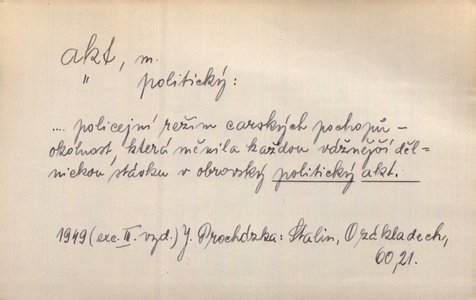 akt, m.
" politický:
.... policejní režim carských pochopů –
okolnost, která měnila každou vážnější děl-
nickou stávku v obrovský politický akt.
1949 (exc. II. vyd.) J. Procházka: Stalin, O základech,
60, 21.